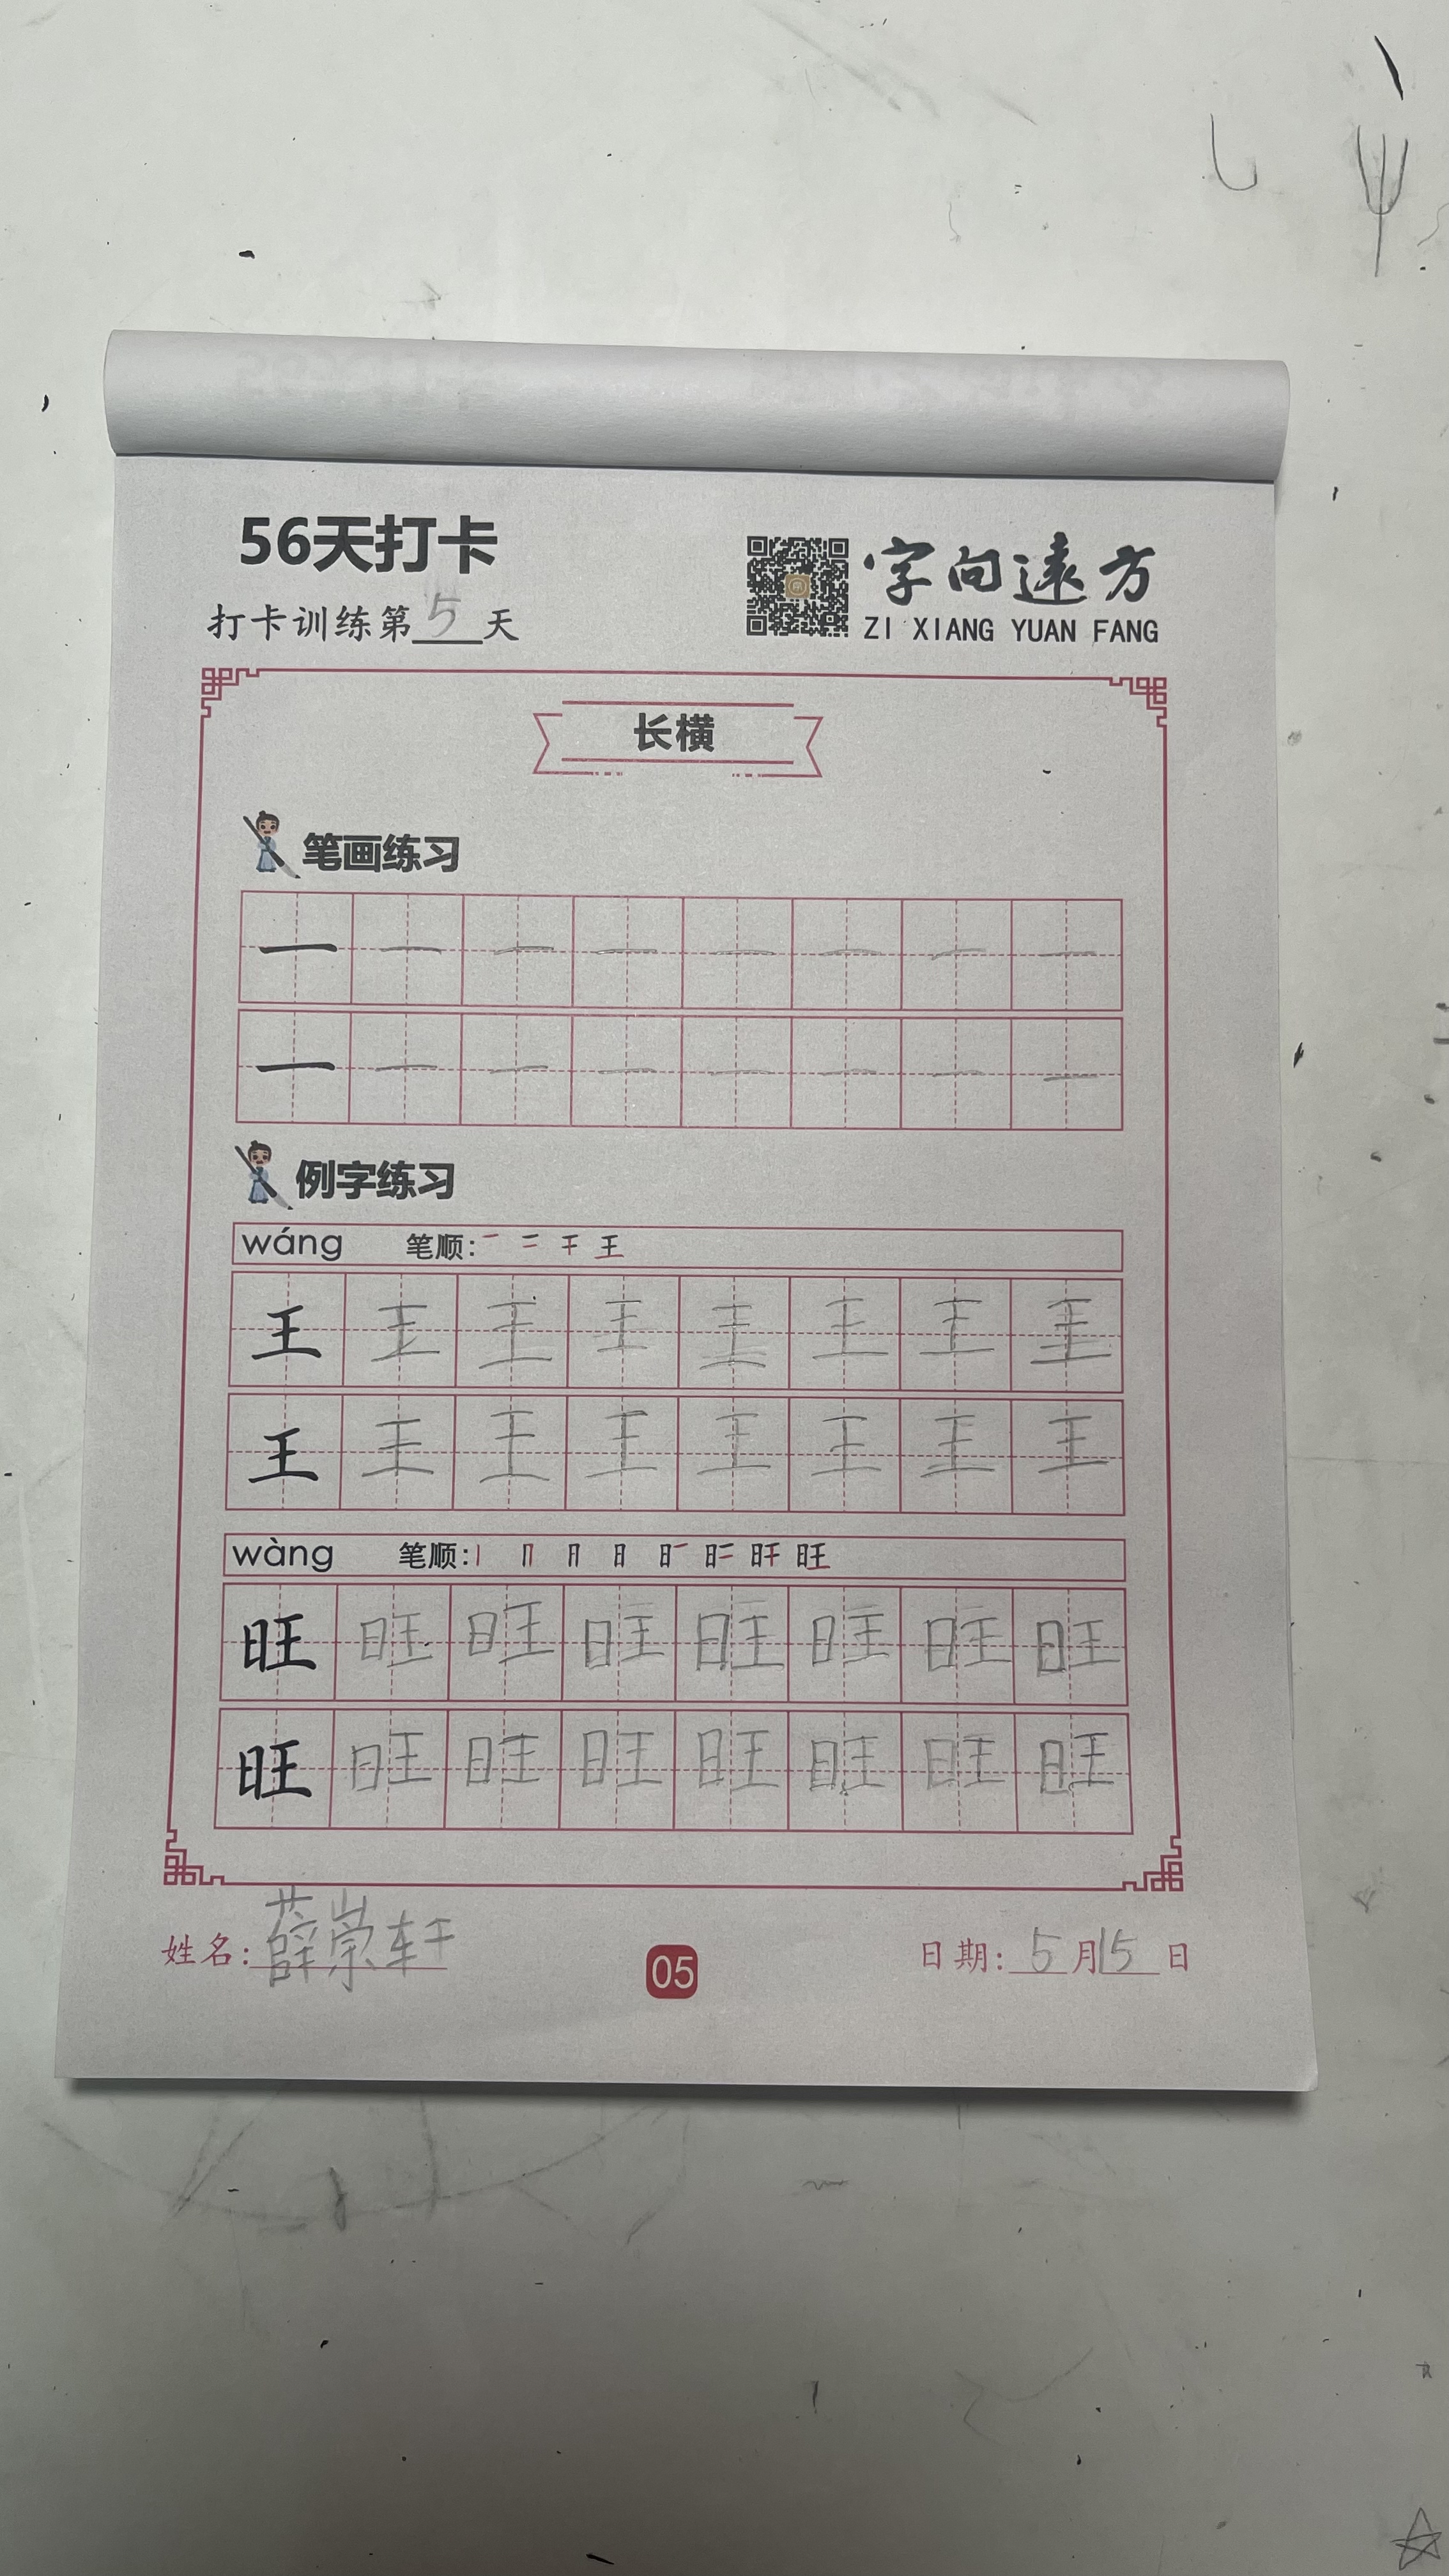 56天打卡
打卡训练第5天
字向遠方
ZI XIANG YUAN FANG
长横
笔画练习
一 一 一 一 一 一 一 一
一 一 一 一 一 一 一 一
例字练习
wáng 笔顺: 王
王 王 王 王 王 王 王 王
王 王 王 王 王 王 王 王
wàng 笔顺: 旺
旺 旺 旺 旺 旺 旺 旺 旺
旺 旺 旺 旺 旺 旺 旺 旺
姓名: 薛崇轩
05
日期: 5月15日